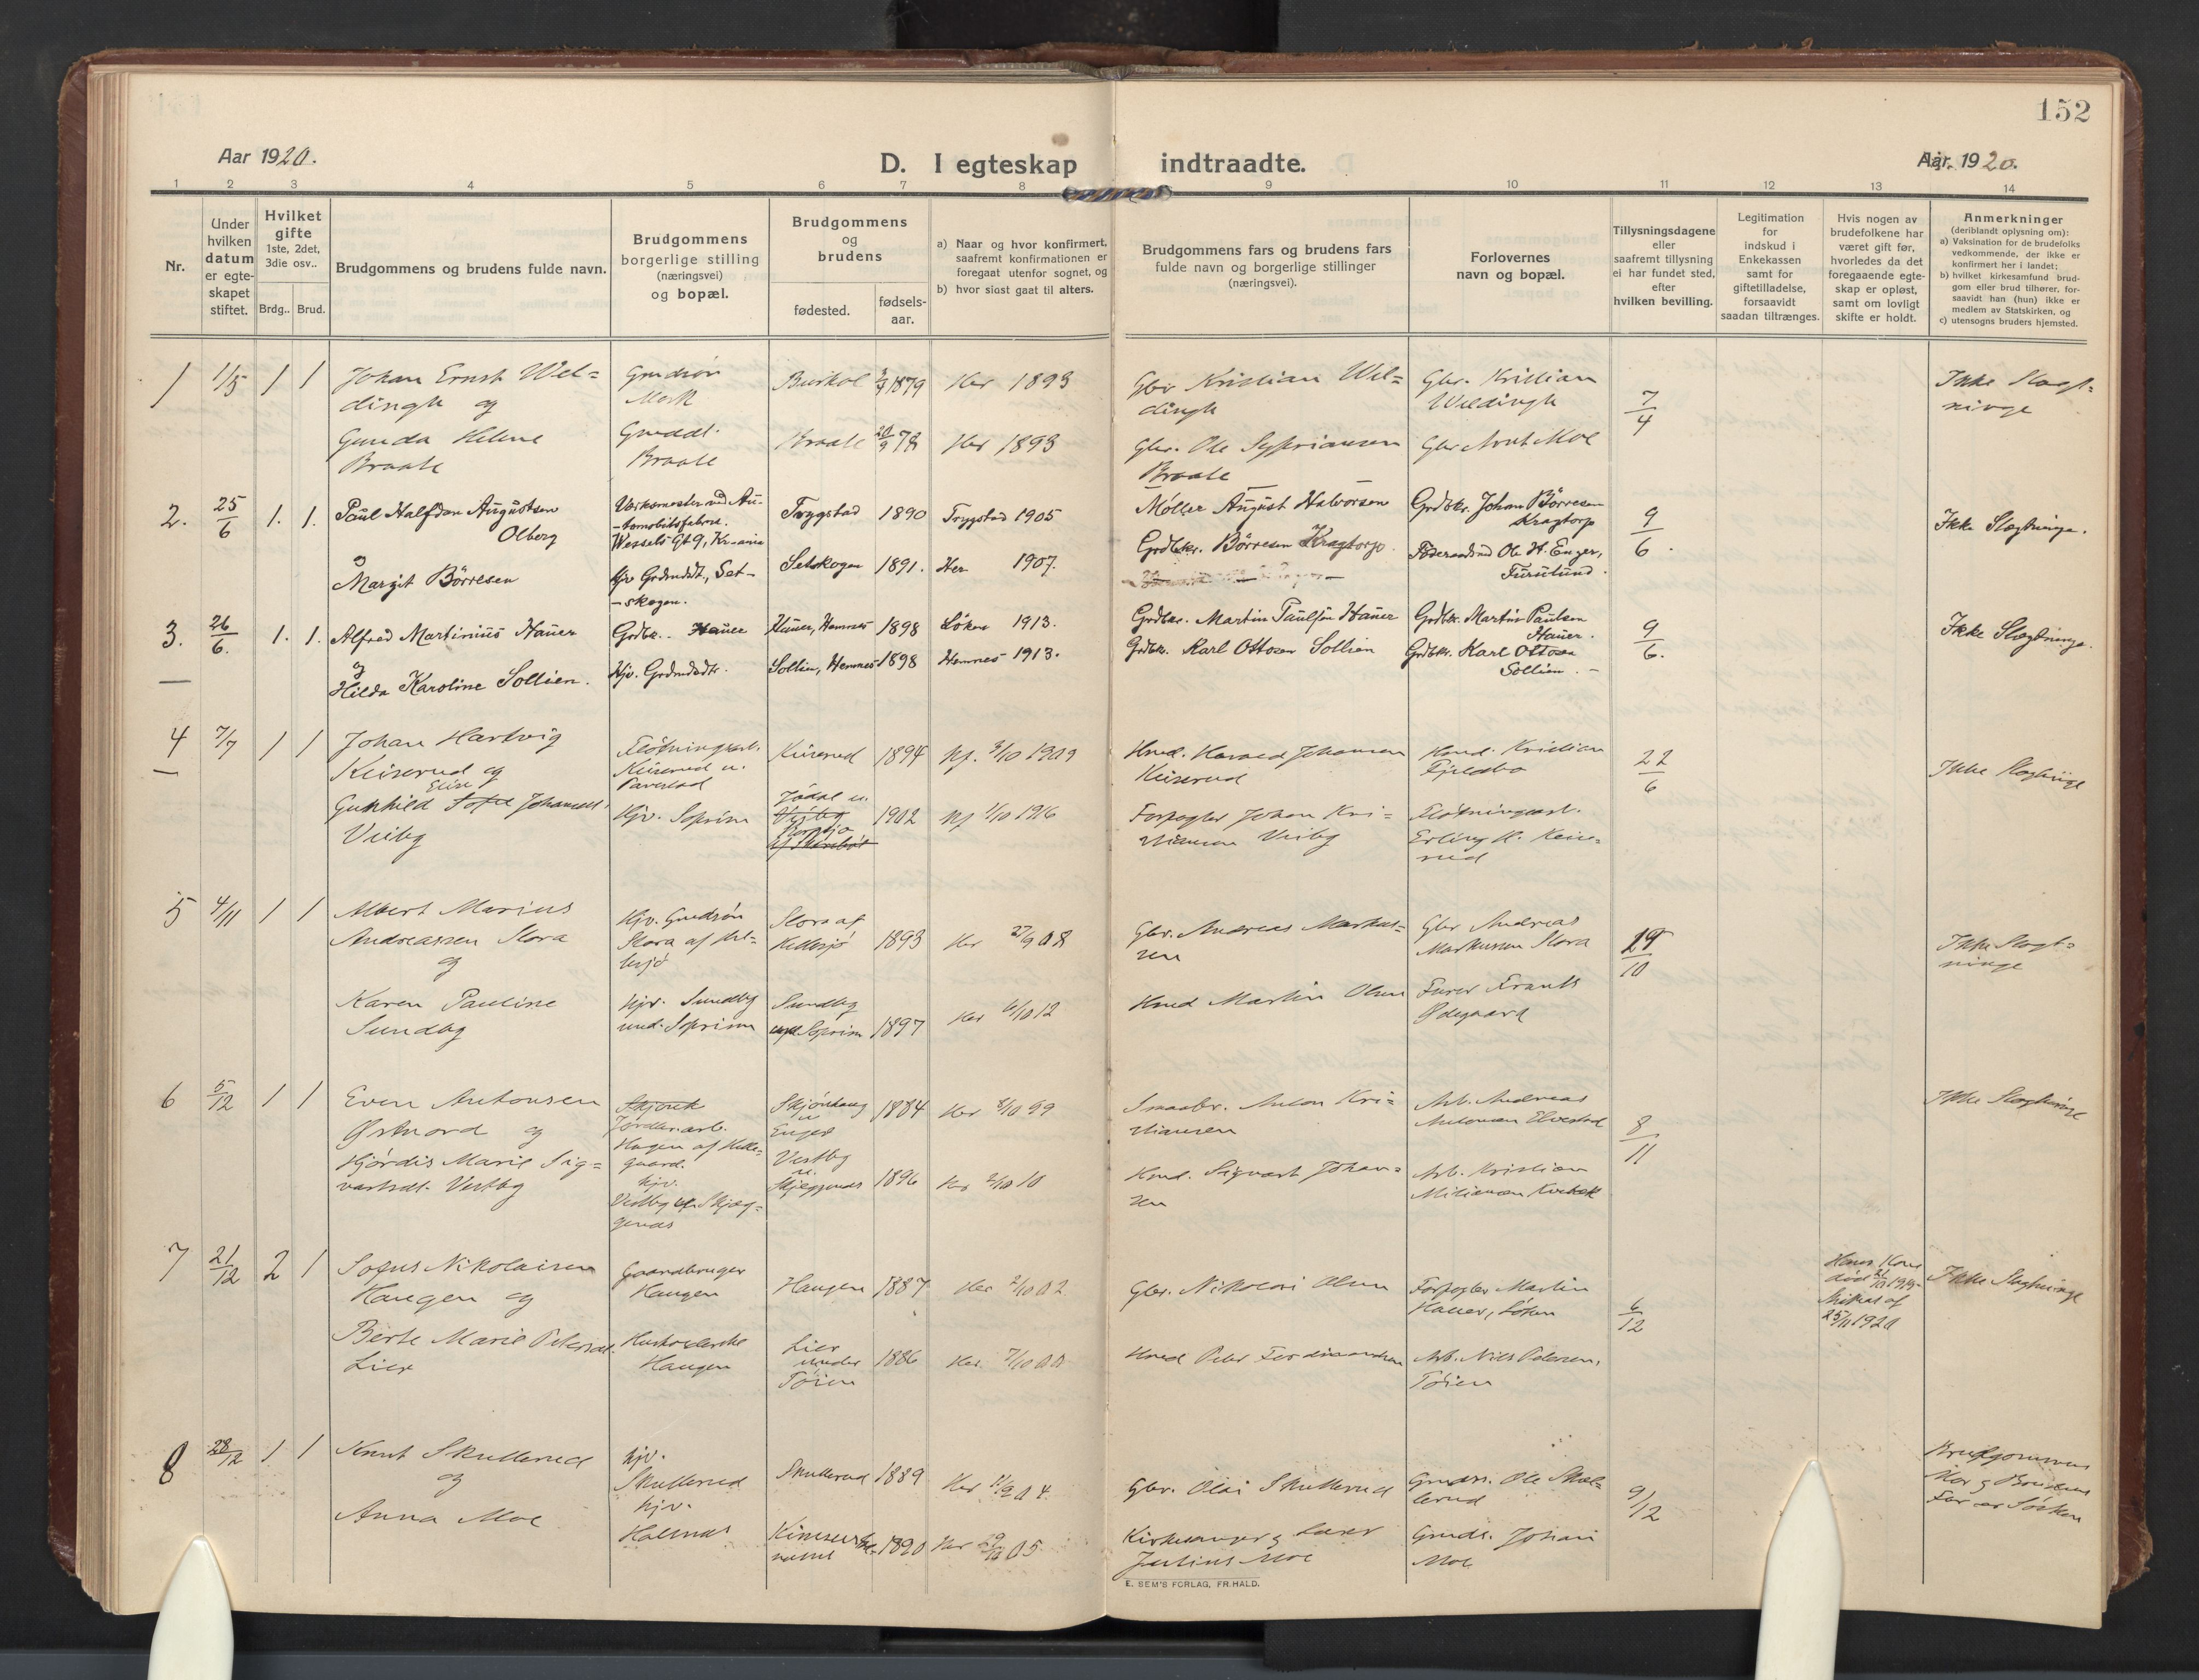 152
Aar 1920.
D. I egteskap indtraadte.
Aar. 1920.
1 2 3 4 5 6 7 8 9 10 11 12 13 14
Nr.
Under
hvilken
datum
er egte-
skapet
stiftet.
Hvilket
gifte
1ste, 2det,
3die osv..
Brdg.. Brud.
Brudgommens og brudens fulde navn.
Brudgommens
borgerlige stilling
(næringsvei)
og bopæl.
Brudgommens
og
brudens
fødested.
fødsels-
aar.
a) Naar og hvor konfirmert,
saafremt konfirmationen er
foregaat utenfor sognet, og
b) hvor sidst gaat til alters.
Brudgommens fars og brudens fars
fulde navn og borgerlige stillinger
(næringsvei).
Forlovernes
navn og bopæl.
Tillysningsdagene
eller
saafremt tillysning
ei har fundet sted,
efter
hvilken bevilling.
Legitimation
for
indskud i
Enkekassen
samt for
giftetilladelse,
forsaavidt
saadan tiltrænges.
Hvis nogen av
brudefolkene har
været gift før,
hvorledes da det
foregaaende egte-
skap er opløst,
samt om lovligt
skifte er holdt.
Anmerkninger
(deriblandt oplysning om):
a) Vaksination for de brudefolks
vedkommende, der ikke er
konfirmert her i landet;
b) hvilket kirkesamfund brud-
gom eller brud tilhører, for-
saavidt han (hun) ikke er
medlem av Statskirken, og
c) utensogns bruders hjemsted.
1 1/5 1 1
Johan Ernst Wel-
dingh og
Gunda Helene
Braate
Gmdsøn
Mork
Gmddt.
Braate
1879
Braate 20/9 78
Her 1893
Her 1893
Gbr Kristian Wel-
dingh
Gbr. Ole Sypriansen
Braate
Gbr. Kristian
Weldingh
Gbr Arnt Moe
7/4
Ikke Slægt-
ninge
2. 25/6 1. 1.
Paul Halfdan Augustsen
Olberg
og
Margit Børresen
Verksmester ved Au-
-tomobilfabrik.
Wessels Gt 9, Kr-ania
Hjv Grdmddt., Set-
-skogen.
Trygstad 1890
Setskogen 1891.
Trygstad 1905
Her 1907.
Møller August Halvorsen
Grdbkr. Børresen Kragtorp.
Grdbkr. Johan Børresen
Kragtorp
Føderaadsmd Ole H. Enger,
Furulund.
9/6.
Ikke Slægtninge.
3. 26/6. 1. 1.
Alfred Martinius Hauer
og
Hilda Karoline Sollien.
Grdbr. Hauer
Hjv. Grdmddtr.
Hauer, Hemnes 1898
Sollien, Hemnes 1898
Løken 1913.
Hemnes 1913.
Grdbkr. Martin Paulsen Hauer
Grdbkr. Karl Ottosen Sollien
Grdbkr. Martin Paulsen
Hauer.
Grdbkr. Karl Ottosen
Sollien.
9/6.
Ikke Slægtninge.
4 7/7 1 1
Johan Hartvig
Keiserud og
Elise
Gunhild Sofie Johannesd.
Veiby
Fløtningsarb.
Keiserud u.
Hjv. Soprim
Keiserud 1894
Veiby
1902
Nf. 3/10 1909
Nf 1/10 1916
Hmd. Harald Johansen
Keiserud
Forpagter Johan Kri-
stiansen Veiby
Hmd. Kristian
Fjeldbo
Fløtningsarb.
Erling H. Keise-
rud
22/6
Ikke Slægtninge
5 4/11 1 1
Albert Marius
Andreassen Slora
og
Karen Pauline
Sundby
Hjv. Gmdsøn
Slora af Ket-
lesjø
Hjv. Sundby
und. Soprim
Slora af
Ketlesjø
1893
Sundby
und Soprim 1897
Her 27/9 08
Her 6/10 12
Gbr. Andreas Markus-
sen
Hmd Martin Olsen
Gbr Andreas
Markussen Slora
Furer Frants
Ødegaard
10
Ikke Slægt-
ninge
6 5/12 1 1
Even Antonsen
Østnord og
Hjørdis Marie Sig-
vartsdt. Vestby
Jordbr.arb.
Hagen af Helle-
gaard.
Hjv.
Vestby af Skjæg-
genæs
Skjønhaug
u.
Enger
Vestby
u.
Skjeggenæs
1884
1896
Her 8/10 99
Her 2/10 10
Smaabr. Anton Kri-
stiansen
Hmd. Sigvart Johan-
sen
Arb. Andreas
Antonsen Elvestad
Arb. Kristian
8/11
Ikke Slægtninge
7 21/12 2 1
Sofus Nikolaisen
Haugen og
Berte Marie Petersdt.
Lier
Gaardbruger
Haugen
Husholderske
Haugen
Haugen 1887
Lier
under
Tøien
1886
Her 2/10 02
Her 7/10 00
Gbr. Nikolai Olsen
Hmd Peter Ferdinandsen
Forpagter Martin
Hauer, Løken
Arb. Nils Petersen,
Tøien
6/12
Hans Kone
død 21/10 1919
Skiftet af
25/11 1920
Ikke Slægtninge
8 28/12 1 1
Knut Skullerud
og
Anna Moe
Hjv.
Skullerud
Hjv.
Holmnes
Skullerud 1889
1890
Her 11/9 04
Her 05
Gbr. Olai Skullerud
Kirkesanger & Lærer
Julius Moe
Gmds. Ole Skul-
lerud
Gmds. Johan
Moe
9/12
Brudgommens
Mor & Brudens
Far er Søsken
E. SEM'S FORLAG, FR.HALD.